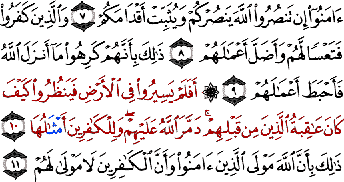 ءَامَنُوٓا۟ إِن تَنصُرُوا۟ ٱللَّهَ يَنصُرْكُمْ وَيُثَبِّتْ أَقْدَامَكُمْ ٧ وَٱلَّذِينَ كَفَرُوا۟
فَتَعْسًا لَّهُمْ وَأَضَلَّ أَعْمَٰلَهُمْ ٨ ذَٰلِكَ بِأَنَّهُمْ كَرِهُوا۟ مَآ أَنزَلَ ٱللَّهُ
فَأَحْبَطَ أَعْمَٰلَهُمْ ٩ ۞ أَفَلَمْ يَسِيرُوا۟ فِى ٱلْأَرْضِ فَيَنظُرُوا۟ كَيْفَ
كَانَ عَٰقِبَةُ ٱلَّذِينَ مِن قَبْلِهِمْ ۚ دَمَّرَ ٱللَّهُ عَلَيْهِمْ ۖ وَلِلْكَٰفِرِينَ أَمْثَٰلُهَا ١٠
ذَٰلِكَ بِأَنَّ ٱللَّهَ مَوْلَى ٱلَّذِينَ ءَامَنُوا۟ وَأَنَّ ٱلْكَٰفِرِينَ لَا مَوْلَىٰ لَهُمْ ١١